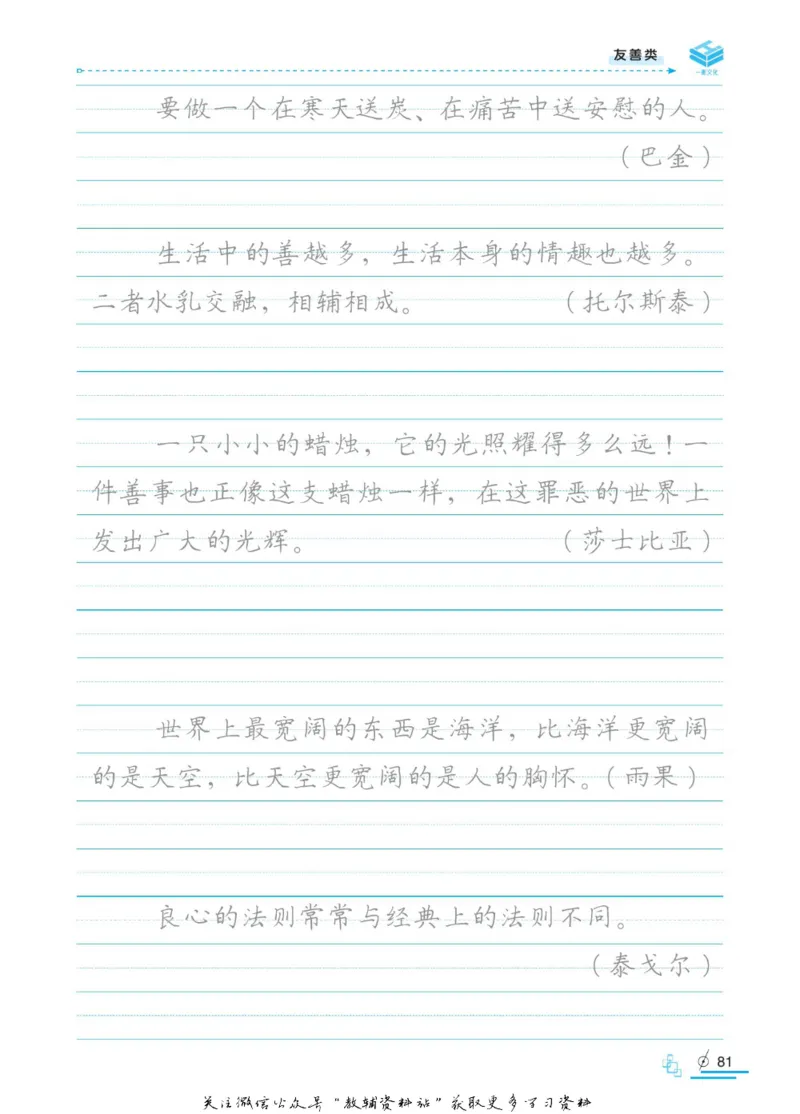 友善类
一墨文化
要做一个在寒天送炭、在痛苦中送安慰的人。
（巴金）
生活中的善越多，生活本身的情趣也越多。
二者水乳交融，相辅相成。（托尔斯泰）
一只小小的蜡烛，它的光照耀得多么远！一
件善事也正像这支蜡烛一样，在这罪恶的世界上
发出广大的光辉。（莎士比亚）
世界上最宽阔的东西是海洋，比海洋更宽阔
的是天空，比天空更宽阔的是人的胸怀。（雨果）
良心的法则常常与经典上的法则不同。
（泰戈尔）
81
关注微信公众号“教辅资料站”获取更多学习资料